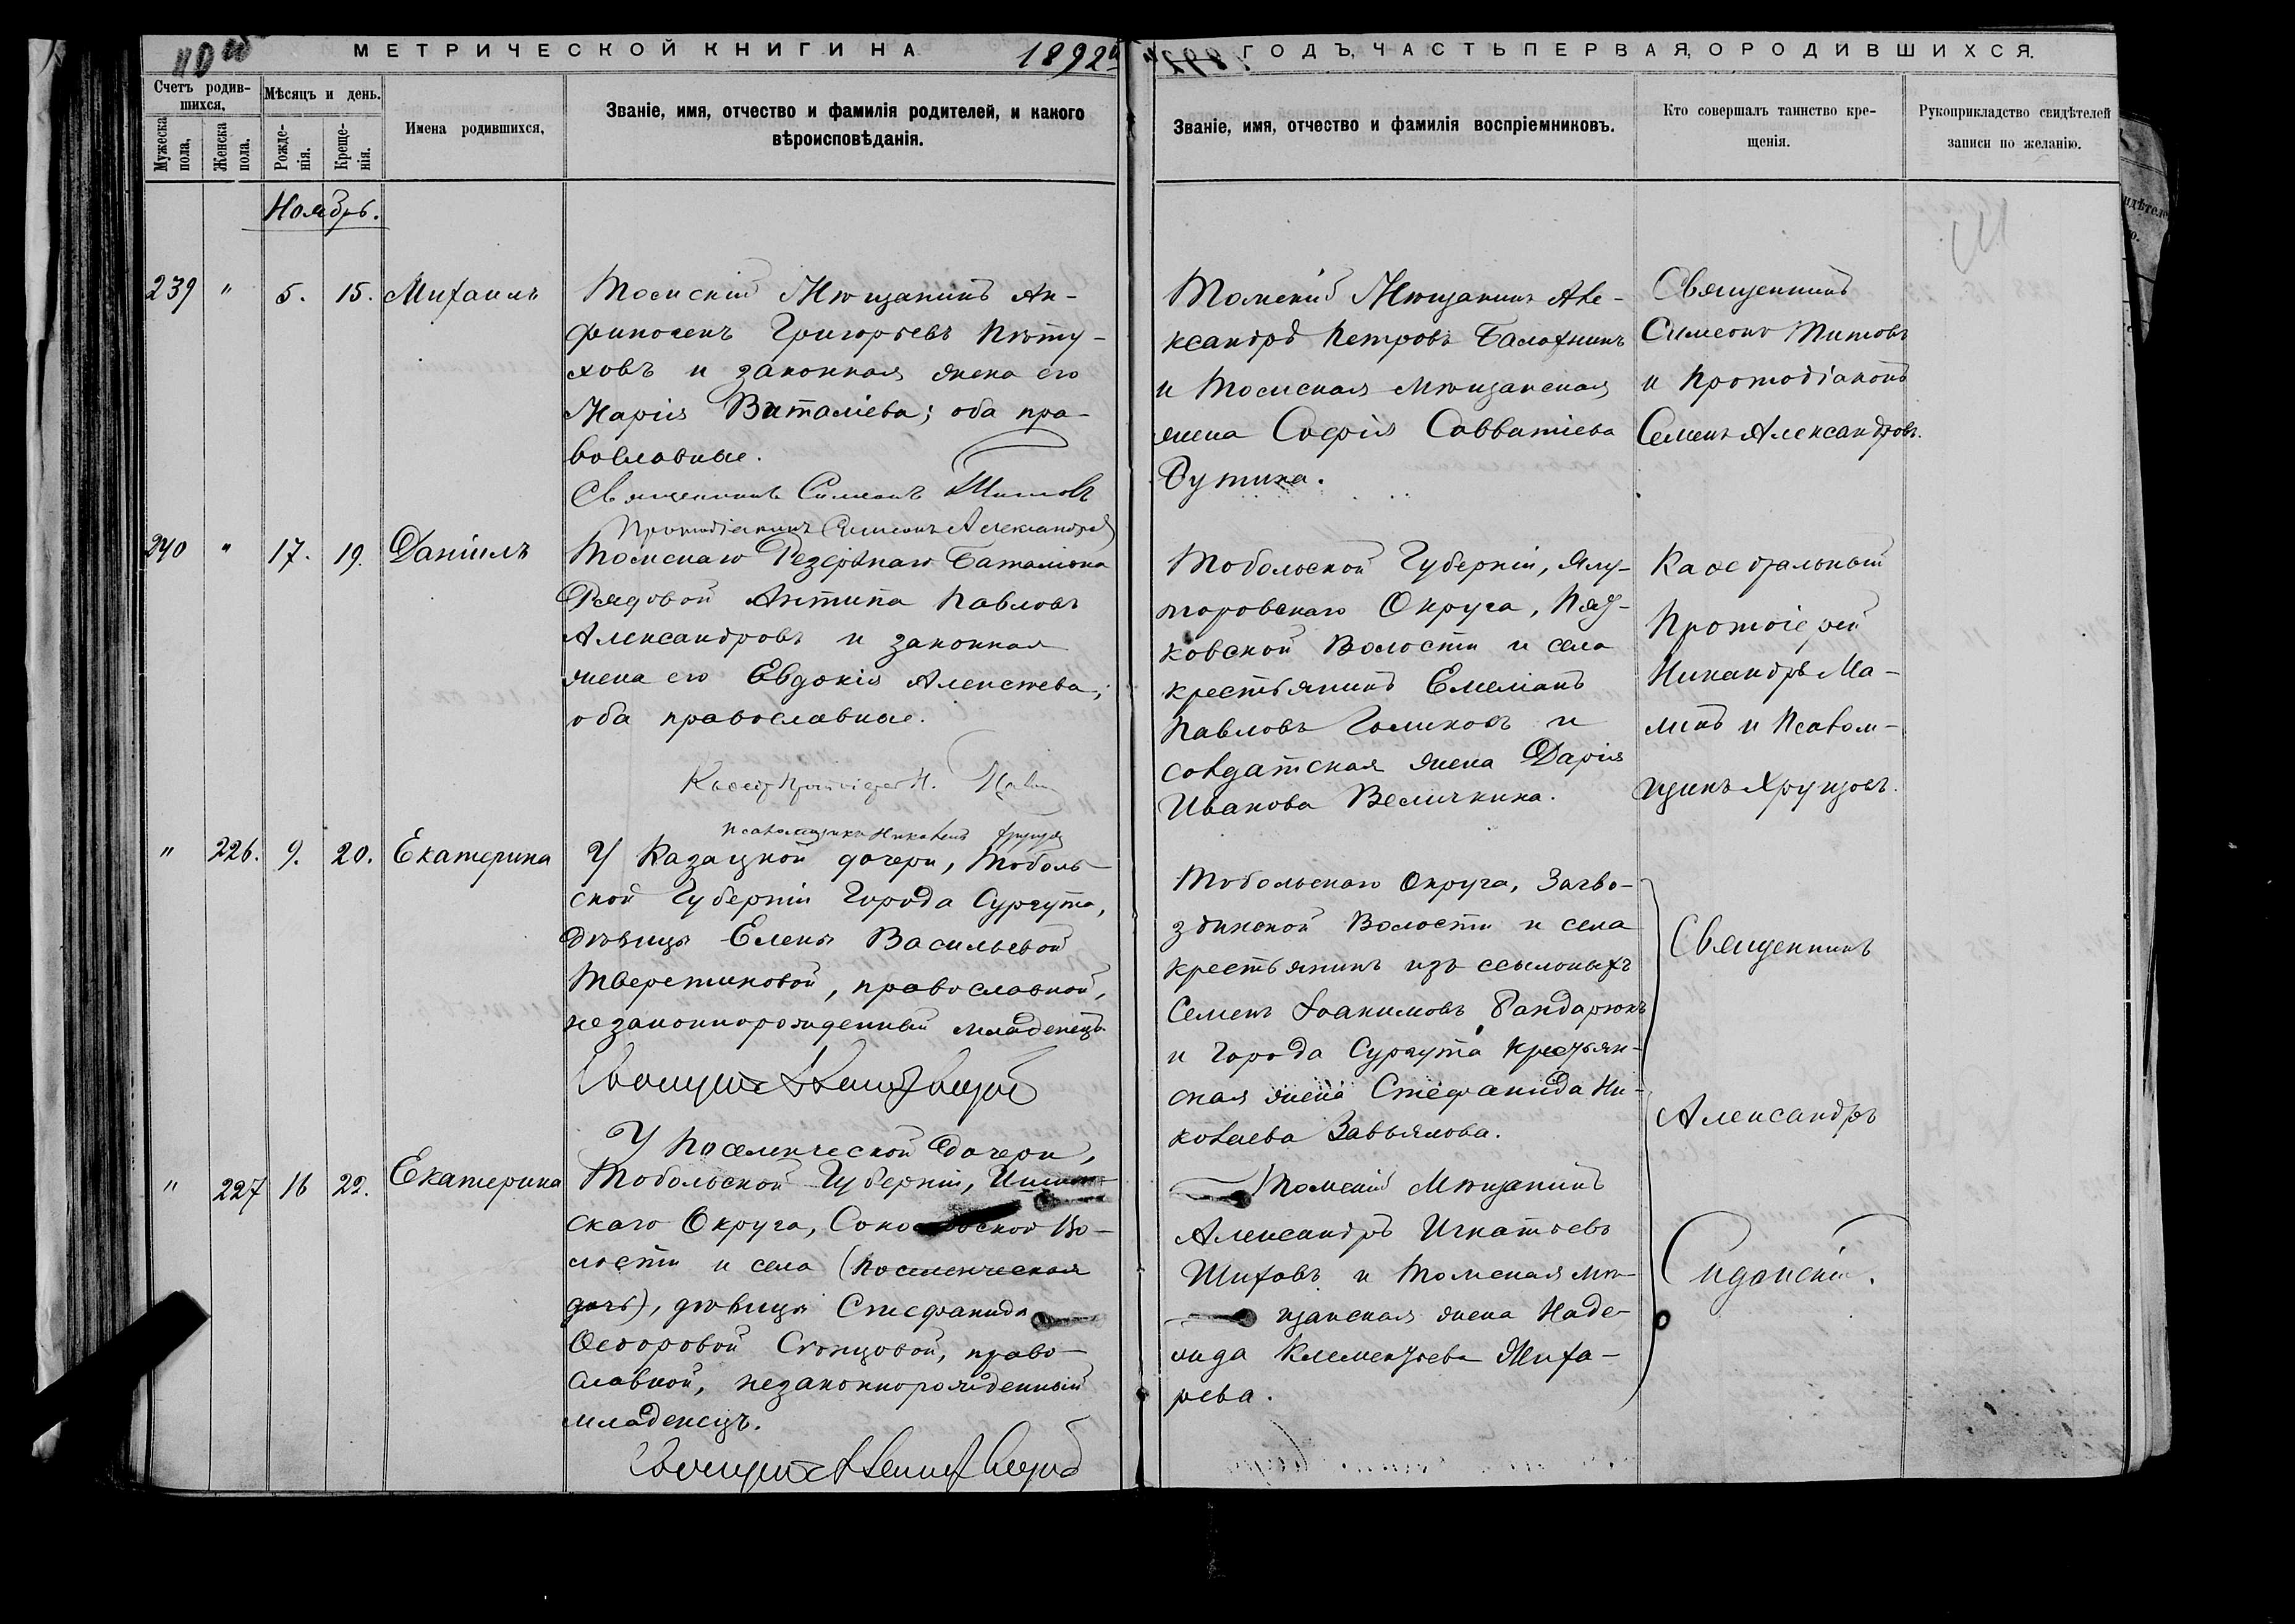 МЕТРИЧЕСКОЙ КНИГИ НА 1892й
ГОДЪ, ЧАСТЬ ПЕРВАЯ, О РОДИВШИХСЯ.
Счетъ родив-
шихся,
Мужеска
пола.
Женска
пола.
Мѣсяцъ и день.
Рожде-
нія.
Креще-
нія.
Имена родившихся,
Званіе, имя, отчество и фамилія родителей, и какого
вѣроисповѣданія.
Званіе, имя, отчество и фамилія воспріемниковъ.
Кто совершалъ таинство кре-
щенія.
Рукоприкладство свидѣтелей
записи по желанію.
Ноябрь.
239 " 5. 15. Михаилъ
Томскій Мѣщанинъ Ан-
финогенъ Григорьевъ Пѣту-
ховъ и законная жена его
Марія Виталіева; оба пра-
вославные.
Священникъ Симеонъ Титовъ
Протодіаконъ Симеонъ Александровъ
Томскій Мѣщанинъ Але-
ксандръ Петровъ Балахнинъ
и Томская мѣщанская
жена Софія Савватіева
Бутина.
Священникъ
Симеонъ Титовъ
и Протодіаконъ
Семенъ Александровъ.
240 " 17. 19. Даніилъ
Томскаго Резервнаго Баталіона
Рядовой Антипа Павловъ
Александровъ и законная
жена его Евдокія Алексѣева;
оба православные.
Псаломщикъ Николай
Тобольской Губерніи, Ялу-
торовскаго Округа, Пят-
ковской Волости и села
крестьянинъ Емеліанъ
Павловъ Голиковъ и
солдатская жена Дарія
Иванова Величкина.
Каѳедральный
Протоіерей
Никандръ Ма-
линъ и Псалом-
щикъ Хрущовъ.
" 226. 9. 20. Екатерина
У Казацкой дочери, Тоболь-
ской Губерніи Города Сургута,
дѣвицы Елены Васильевой
Тверетиновой, православной,
незаконнорожденный младенецъ
Тобольскаго Округа, Загво-
здинской Волости и села
крестьянинъ изъ ссыльныхъ
Семенъ Іоакимовъ Бандарюкъ
и Города Сургута крестьян-
ская жена Стефанида Ни-
колаева Завьялова.
Священникъ
Александръ
Сидонскій.
" 227 16 22. Екатерина
У поселенческой дочери,
Тобольской Губерніи, Ишим-
скаго Округа, вской Во-
лости и села (поселенческая
дочь), дѣвицы Стефаниды
Ѳеодоровой Скопцовой, право-
славной, незаконнорожденный
младенецъ.
Томскій Мѣщанинъ
Александръ Игнатьевъ
Шиховъ и Томская мѣ-
щанская жена Наде-
жда Клементьева Жиха-
рева.